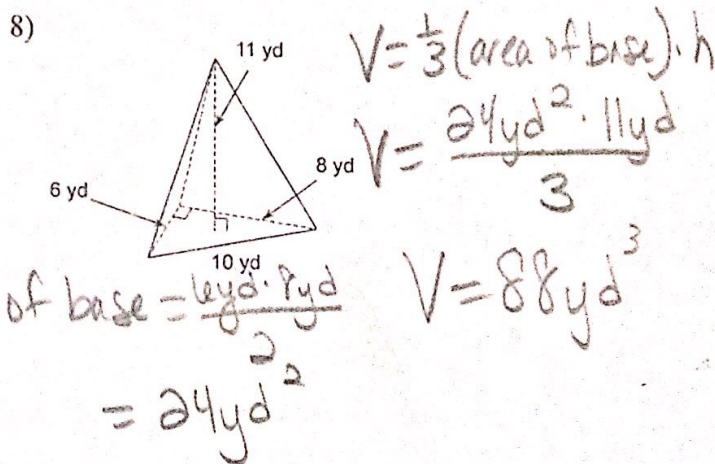 8)
11 yd
8 yd
6 yd
10 yd
V = 1/3 (area of base) · h
V = 24yd² · 11yd / 3
V = 88yd³
of base = 6yd · 8yd / 2
= 24yd²